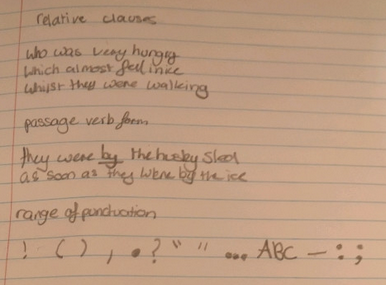 relative clauses
who was very hungry
which almost fell in ice
whilst they were walking
passage verb form
they were by the husky sled
as soon as they were by the ice
range of punctuation
! ( ) , . ? “ ” ... ABC – : ;